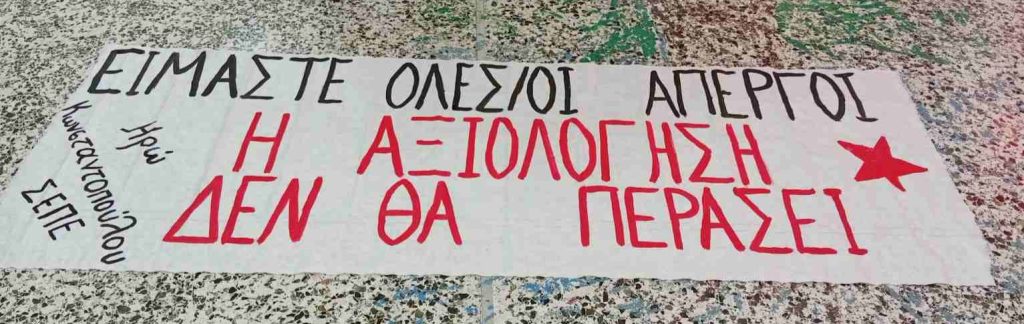 ΕΙΜΑΣΤΕ ΟΛΕΣ/ΟΙ ΑΠΕΡΓΟΙ
Η ΑΞΙΟΛΟΓΗΣΗ
ΔΕΝ ΘΑ ΠΕΡΑΣΕΙ
Ηρώ
Κωνσταντοπούλου
ΣΕΠΕ